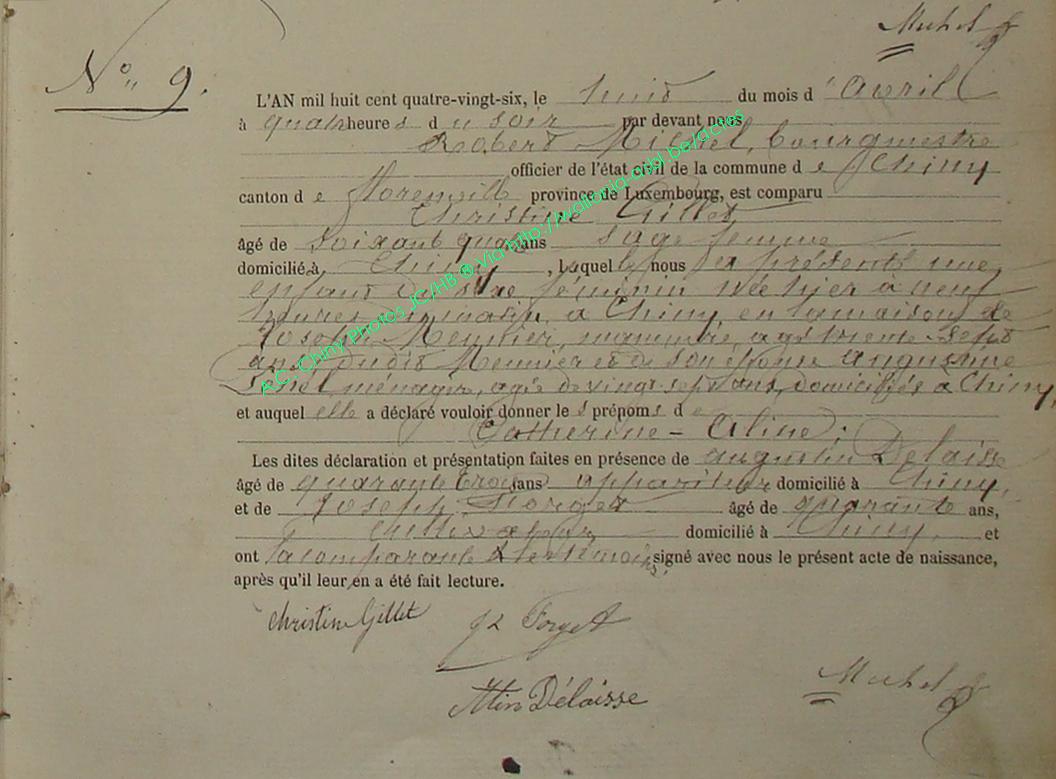 Michel
N° 9.
L'AN mil huit cent quatre-vingt-six, le huit du mois d'Avril
à quatre heures du soir par devant nous
Robert Michel, bourgmestre
officier de l'état civil de la commune de Chiny
canton de Florenville province de Luxembourg, est comparu
Christine Gillet
âgé de soixante quatre ans sage femme
domicilié à Chiny, laquelle nous a présenté une
enfant du sexe féminin née hier à neuf
heures du matin, à Chiny en la maison de
Joseph Meunier, manœuvre, agé trente-sept
ans, dudit Meunier et de son épouse Augustine
ménagère, agée de vingt-sept ans, domiciliés à Chiny,
et auquel elle a déclaré vouloir donner les prénoms de
Catherine-Aline;
Les dites déclaration et présentation faites en présence de Augustin Delaisse
âgé de quarante trois ans appariteur domicilié à Chiny,
et de Joseph Forget âgé de quarante ans,
cultivateur domicilié à Chiny, et
ont la comparante & les témoins signé avec nous le présent acte de naissance,
après qu'il leur en a été fait lecture.
Christine Gillet Forget
Atin Délaisse Michel
A.C. Chiny Photos JC/HB © via http://wallonia-axhl.be/actes